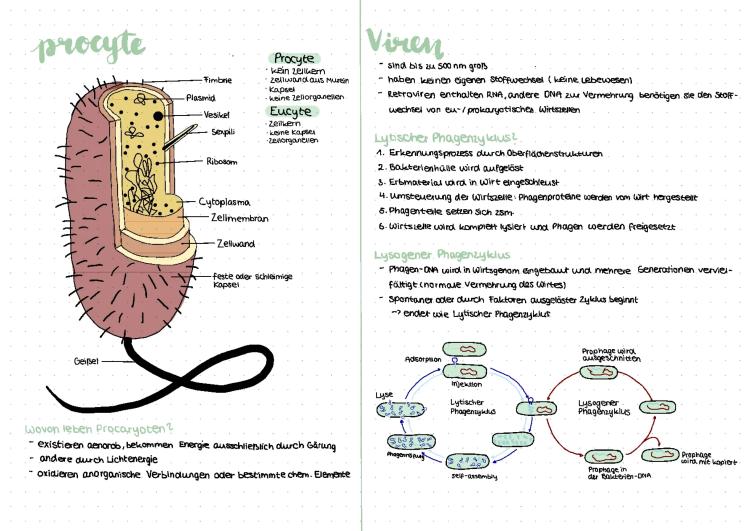 procyte
Fimbrie
Plasmid
Vesikel
Sexpili
Ribosom
Cytoplasma
Zellmembran
Zellwand
feste oder schleimige
Kapsel
Geißel
Procyte
· kein Zellkern
· Zellwand aus Murein
· Kapsel
· keine Zellorganellen
Eucyte
· Zellkern
· keine Kapsel
· Zellorganellen
Wovon leben Procaryoten?
- existieren aenorob, bekommen Energie ausschließlich durch Gärung
- andere durch Lichtenergie
- oxidieren anorganische Verbindungen oder bestimmte chem. Elemente
Viren
- sind bis zu 500 nm groß
- haben keinen eigenen Stoffwechsel (keine Lebewesen)
- Retroviren enthalten RNA, andere DNA zur Vermehrung benötigen sie den Stoff-
wechsel von eu-/prokaryotischen Wirtszellen
Lytischer Phagenzyklus?
1. Erkennungsprozess durch Oberflächenstrukturen
2. Bakterienhülle wird aufgelöst
3. Erbmaterial wird in Wirt eingeschleust
4. Umsteuerung der Wirtszelle: Phagenproteine werden vom Wirt hergestellt
5. Phagenteile setzen sich zsm.
6. Wirtszelle wird komplett lysiert und Phagen werden freigesetzt
Lysogener Phagenzyklus
- Phagen-DNA wird in Wirtsgenom eingebaut und mehrere Generationen verviel-
fältigt (normale Vermehrung des Wirtes)
- Spontaner oder durch Faktoren ausgelöster Zyklus beginnt
-> endet wie Lytischer Phagenzyklus
Adsorption
Injektion
Lyse
Lytischer
Phagenzyklus
self-assembly
Prophage wird
ausgeschnitten
Lysogener
Phagenzyklus
Prophage in
der Bakterien-DNA
Prophage
wird mit kopiert